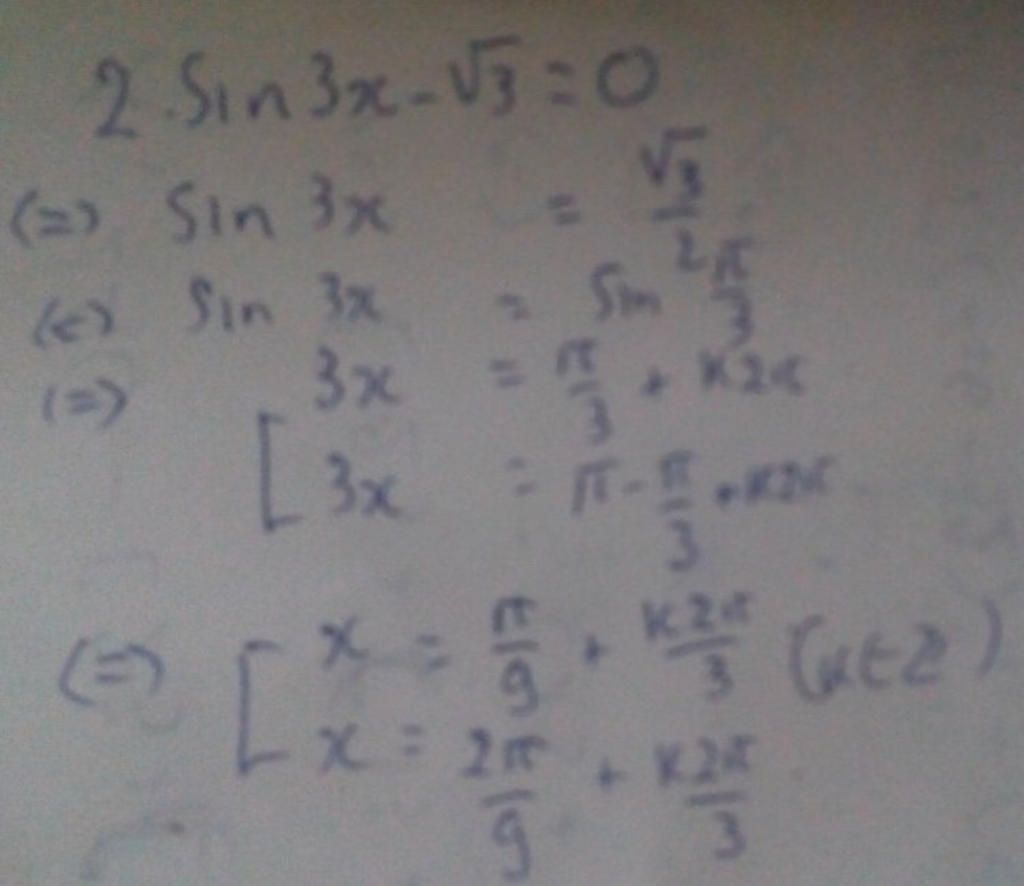 2.Sin3x-√3=0
(=) Sin 3x = √3/2
(=) Sin 3x = Sin π/3
(=) [ 3x = π/3 + K2π
3x = π-π/3+K2π
(=) [ x = π/9 + K2π/3 (K∈Z)
x = 2π/9 + K2π/3